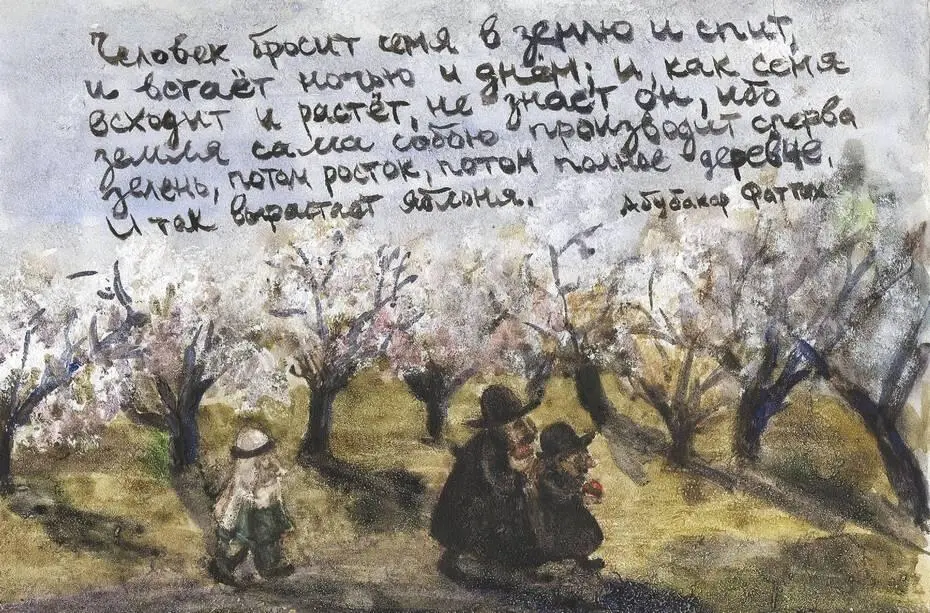 Человек бросит семя в землю и спит,
и встаёт ночью и днём; и, как семя
всходит и растёт, не знает он, ибо
земля сама собою производит сперва
зелень, потом росток, потом полное деревце.
И так вырастает яблоня.
Абубакар Фаттих